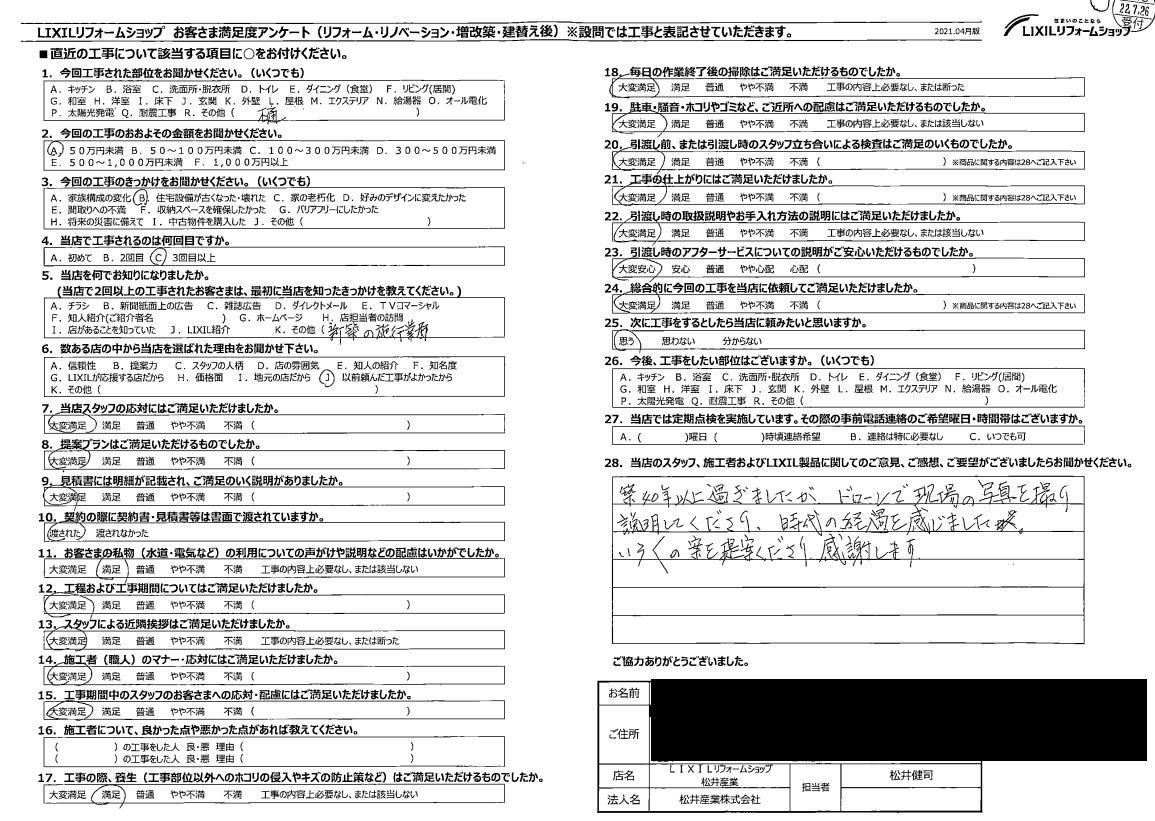 22.7.26
受付
LIXILリフォームショップ お客さま満足度アンケート（リフォーム・リノベーション・増改築・建替え後）※設問では工事と表記させていただきます。
2021.04月版
住まいのことなら
LIXILリフォームショップ
■直近の工事について該当する項目に○をお付けください。
1．今回工事された部位をお聞かせください。（いくつでも）
A．キッチン B．浴室 C．洗面所・脱衣所 D．トイレ E．ダイニング（食堂） F．リビング（居間）
G．和室 H．洋室 I．床下 J．玄関 K．外壁 L．屋根 M．エクステリア N．給湯器 O．オール電化
P．太陽光発電 Q．耐震工事 R．その他（ 樋 ）
2．今回の工事のおおよその金額をお聞かせください。
A．50万円未満 B．50～100万円未満 C．100～300万円未満 D．300～500万円未満
E．500～1,000万円未満 F．1,000万円以上
3．今回の工事のきっかけをお聞かせください。（いくつでも）
A．家族構成の変化 B．住宅設備が古くなった・壊れた C．家の老朽化 D．好みのデザインに変えたかった
E．間取りへの不満 F．収納スペースを確保したかった G．バリアフリーにしたかった
H．将来の災害に備えて I．中古物件を購入した J．その他（ ）
4．当店で工事されるのは何回目ですか。
A．初めて B．2回目 C．3回目以上
5．当店を何でお知りになりましたか。
（当店で2回以上の工事されたお客さまは、最初に当店を知ったきっかけを教えてください。）
A．チラシ B．新聞紙面上の広告 C．雑誌広告 D．ダイレクトメール E．TVコマーシャル
F．知人紹介(ご紹介者名 ) G．ホームページ H．店担当者の訪問
I．店があることを知っていた J．LIXIL紹介 K．その他（ 新築の施行業者
6．数ある店の中から当店を選ばれた理由をお聞かせ下さい。
A．信頼性 B．提案力 C．スタッフの人柄 D．店の雰囲気 E．知人の紹介 F．知名度
G．LIXILが応援する店だから H．価格面 I．地元の店だから J．以前頼んだ工事がよかったから
K．その他（ ）
7．当店スタッフの応対にはご満足いただけましたか。
大変満足 満足 普通 やや不満 不満（ ）
8．提案プランはご満足いただけるものでしたか。
大変満足 満足 普通 やや不満 不満（ ）
9．見積書には明細が記載され、ご満足のいく説明がありましたか。
大変満足 満足 普通 やや不満 不満（
10．契約の際に契約書・見積書等は書面で渡されていますか。
渡された 渡されなかった
11．お客さまの私物（水道・電気など）の利用についての声がけや説明などの配慮はいかがでしたか。
大変満足 満足 普通 やや不満 不満 工事の内容上必要なし、または該当しない
12．工程および工事期間についてはご満足いただけましたか。
大変満足 満足 普通 やや不満 不満（ ）
13．スタッフによる近隣挨拶はご満足いただけましたか。
大変満足 満足 普通 やや不満 不満 工事の内容上必要なし、または断った
14．施工者（職人）のマナー・応対にはご満足いただけましたか。
大変満足 満足 普通 やや不満 不満（ ）
15．工事期間中のスタッフのお客さまへの応対・配慮にはご満足いただけましたか。
大変満足 満足 普通 やや不満 不満（ ）
16．施工者について、良かった点や悪かった点があれば教えてください。
（ ）の工事をした人 良・悪 理由（ ）
（ ）の工事をした人 良・悪 理由（ ）
17．工事の際、養生（工事部位以外へのホコリの侵入やキズの防止策など）はご満足いただけるものでしたか。
大変満足 満足 普通 やや不満 不満 工事の内容上必要なし、または該当しない
18．毎日の作業終了後の掃除はご満足いただけるものでしたか。
大変満足 満足 普通 やや不満 不満 工事の内容上必要なし、または断った
19．駐車・騒音・ホコリやゴミなど、ご近所への配慮はご満足いただけるものでしたか。
大変満足 満足 普通 やや不満 不満 工事の内容上必要なし、または該当しない
20．引渡し前、または引渡し時のスタッフ立ち合いによる検査はご満足のいくものでしたか。
大変満足 満足 普通 やや不満 不満（ ）※商品に関する内容は28へご記入下さい
21．工事の仕上がりにはご満足いただけましたか。
大変満足 満足 普通 やや不満 不満（ ）※商品に関する内容は28へご記入下さい
22．引渡し時の取扱説明やお手入れ方法の説明にはご満足いただけましたか。
大変満足 満足 普通 やや不満 不満 工事の内容上必要なし、または該当しない
23．引渡し時のアフターサービスについての説明がご安心いただけるものでしたか。
大変安心 安心 普通 やや心配 心配（ ）
24．総合的に今回の工事を当店に依頼してご満足いただけましたか。
大変満足 満足 普通 やや不満 不満（ ）※商品に関する内容は28へご記入下さい
25．次に工事をするとしたら当店に頼みたいと思いますか。
思う 思わない 分からない
26．今後、工事をしたい部位はございますか。（いくつでも）
A．キッチン B．浴室 C．洗面所・脱衣所 D．トイレ E．ダイニング（食堂） F．リビング(居間)
G．和室 H．洋室 I．床下 J．玄関 K．外壁 L．屋根 M．エクステリア N．給湯器 O．オール電化
P．太陽光発電 Q．耐震工事 R．その他（ ）
27．当店では定期点検を実施しています。その際の事前電話連絡のご希望曜日・時間帯はございますか。
A．（ ）曜日（ ）時頃連絡希望 B．連絡は特に必要なし C．いつでも可
28．当店のスタッフ、施工者およびLIXIL製品に関してのご意見、ご感想、ご要望がございましたらお聞かせください。
築40年以上過ぎましたが、ドローンで現場の写真を撮り
説明してくださり、時代の経過を感じました。
いろくの案を提案くださり感謝します
ご協力ありがとうございました。
お名前
ご住所
店名 LIXILリフォームショップ 松井産業
担当者 松井健司
法人名 松井産業株式会社